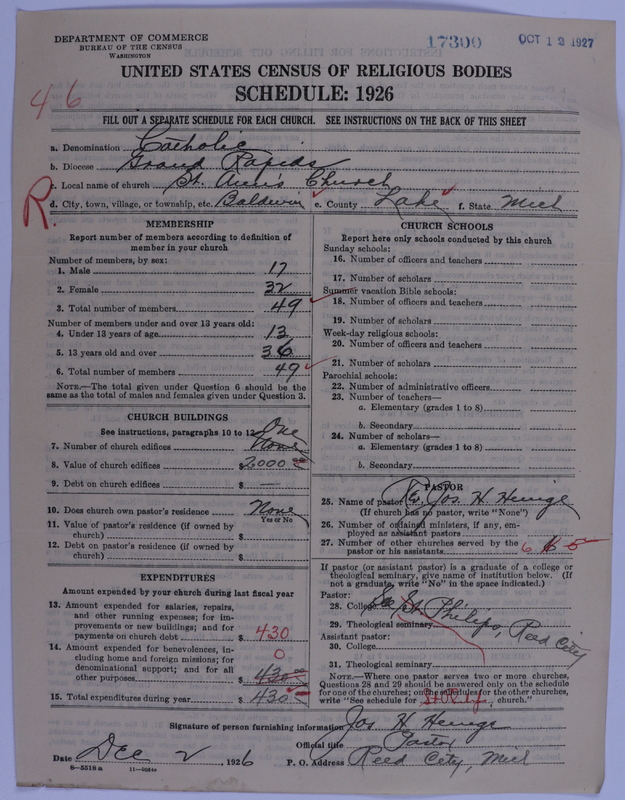 DEPARTMENT OF COMMERCE
BUREAU OF THE CENSUS
WASHINGTON
17300
OCT 12 1927
UNITED STATES CENSUS OF RELIGIOUS BODIES
SCHEDULE: 1926
46
FILL OUT A SEPARATE SCHEDULE FOR EACH CHURCH. SEE INSTRUCTIONS ON THE BACK OF THIS SHEET
a. Denomination Catholic
b. Diocese Grand Rapids
c. Local name of church St. Ann's Church
R.
d. City, town, village, or township, etc. Baldwin e. County Lake f. State Mich
MEMBERSHIP
Report number of members according to definition of member in your church
Number of members, by sex:
1. Male 17
2. Female 32
3. Total number of members 49
Number of members under and over 13 years old:
4. Under 13 years of age 13
5. 13 years old and over 36
6. Total number of members 49
NOTE.—The total given under Question 6 should be the same as the total of males and females given under Question 3.
CHURCH BUILDINGS
See instructions, paragraphs 10 to 12
One
7. Number of church edifices None
8. Value of church edifices $2000
9. Debt on church edifices $ —
10. Does church own pastor's residence None
Yes or No
11. Value of pastor's residence (if owned by church) $
12. Debt on pastor's residence (if owned by church) $
EXPENDITURES
Amount expended by your church during last fiscal year
13. Amount expended for salaries, repairs, and other running expenses; for improvements or new buildings; and for payments on church debt $ 430
14. Amount expended for benevolences, including home and foreign missions; for denominational support; and for all other purposes 0 430.00
15. Total expenditures during year $ 430
CHURCH SCHOOLS
Report here only schools conducted by this church
Sunday schools:
16. Number of officers and teachers
17. Number of scholars
Summer vacation Bible schools:
18. Number of officers and teachers
19. Number of scholars
Week-day religious schools:
20. Number of officers and teachers
21. Number of scholars
Parochial schools:
22. Number of administrative officers
23. Number of teachers—
a. Elementary (grades 1 to 8)
b. Secondary
24. Number of scholars—
a. Elementary (grades 1 to 8)
b. Secondary
PASTOR
25. Name of pastor Jos. H.
(If church has no pastor, write "None")
26. Number of ordained ministers, if any, employed as assistant pastors
27. Number of other churches served by the pastor or his assistants 6
If pastor (or assistant pastor) is a graduate of a college or theological seminary, give name of institution below. (If not a graduate, write "No" in the space indicated.)
Pastor:
28. College See St. Philips, Reed City
29. Theological seminary
Assistant pastor:
30. College
31. Theological seminary
NOTE.—Where one pastor serves two or more churches, Questions 28 and 29 should be answered only on the schedule for one of the churches; on the schedules for the other churches, write "See schedule for church."
Signature of person furnishing information Jos H
Official title Pastor
Date Dec 2, 1926 P. O. Address Reed City, Mich
8—5518 a